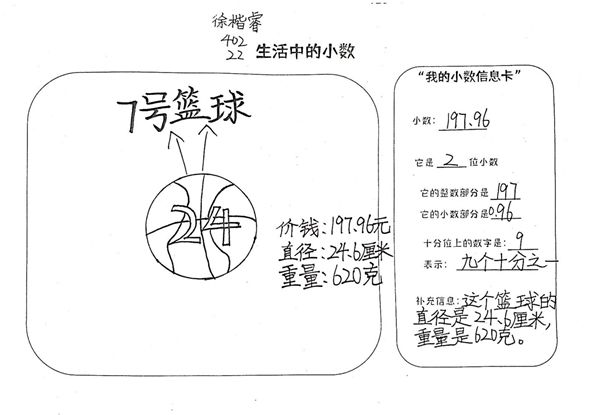 徐楷睿
402
22
生活中的小数
7号篮球
24
价钱:197.96元
直径:24.6厘米
重量:620克
“我的小数信息卡”
小数: 197.96
它是 2 位小数
它的整数部分是 197
它的小数部分是0.96
十分位上的数字是: 9
表示: 九个十分之一
补充信息:这个篮球的
直径是24.6厘米,
重量是620克。